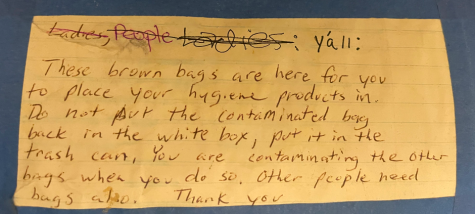 Ladies, People Ladies: yáll:
These brown bags are here for you
to place your hygiene products in.
Do not put the contaminated bag
back in the white box, put it in the
trash can. You are contaminating the other
bags when you do so. Other people need
bags also. Thank you